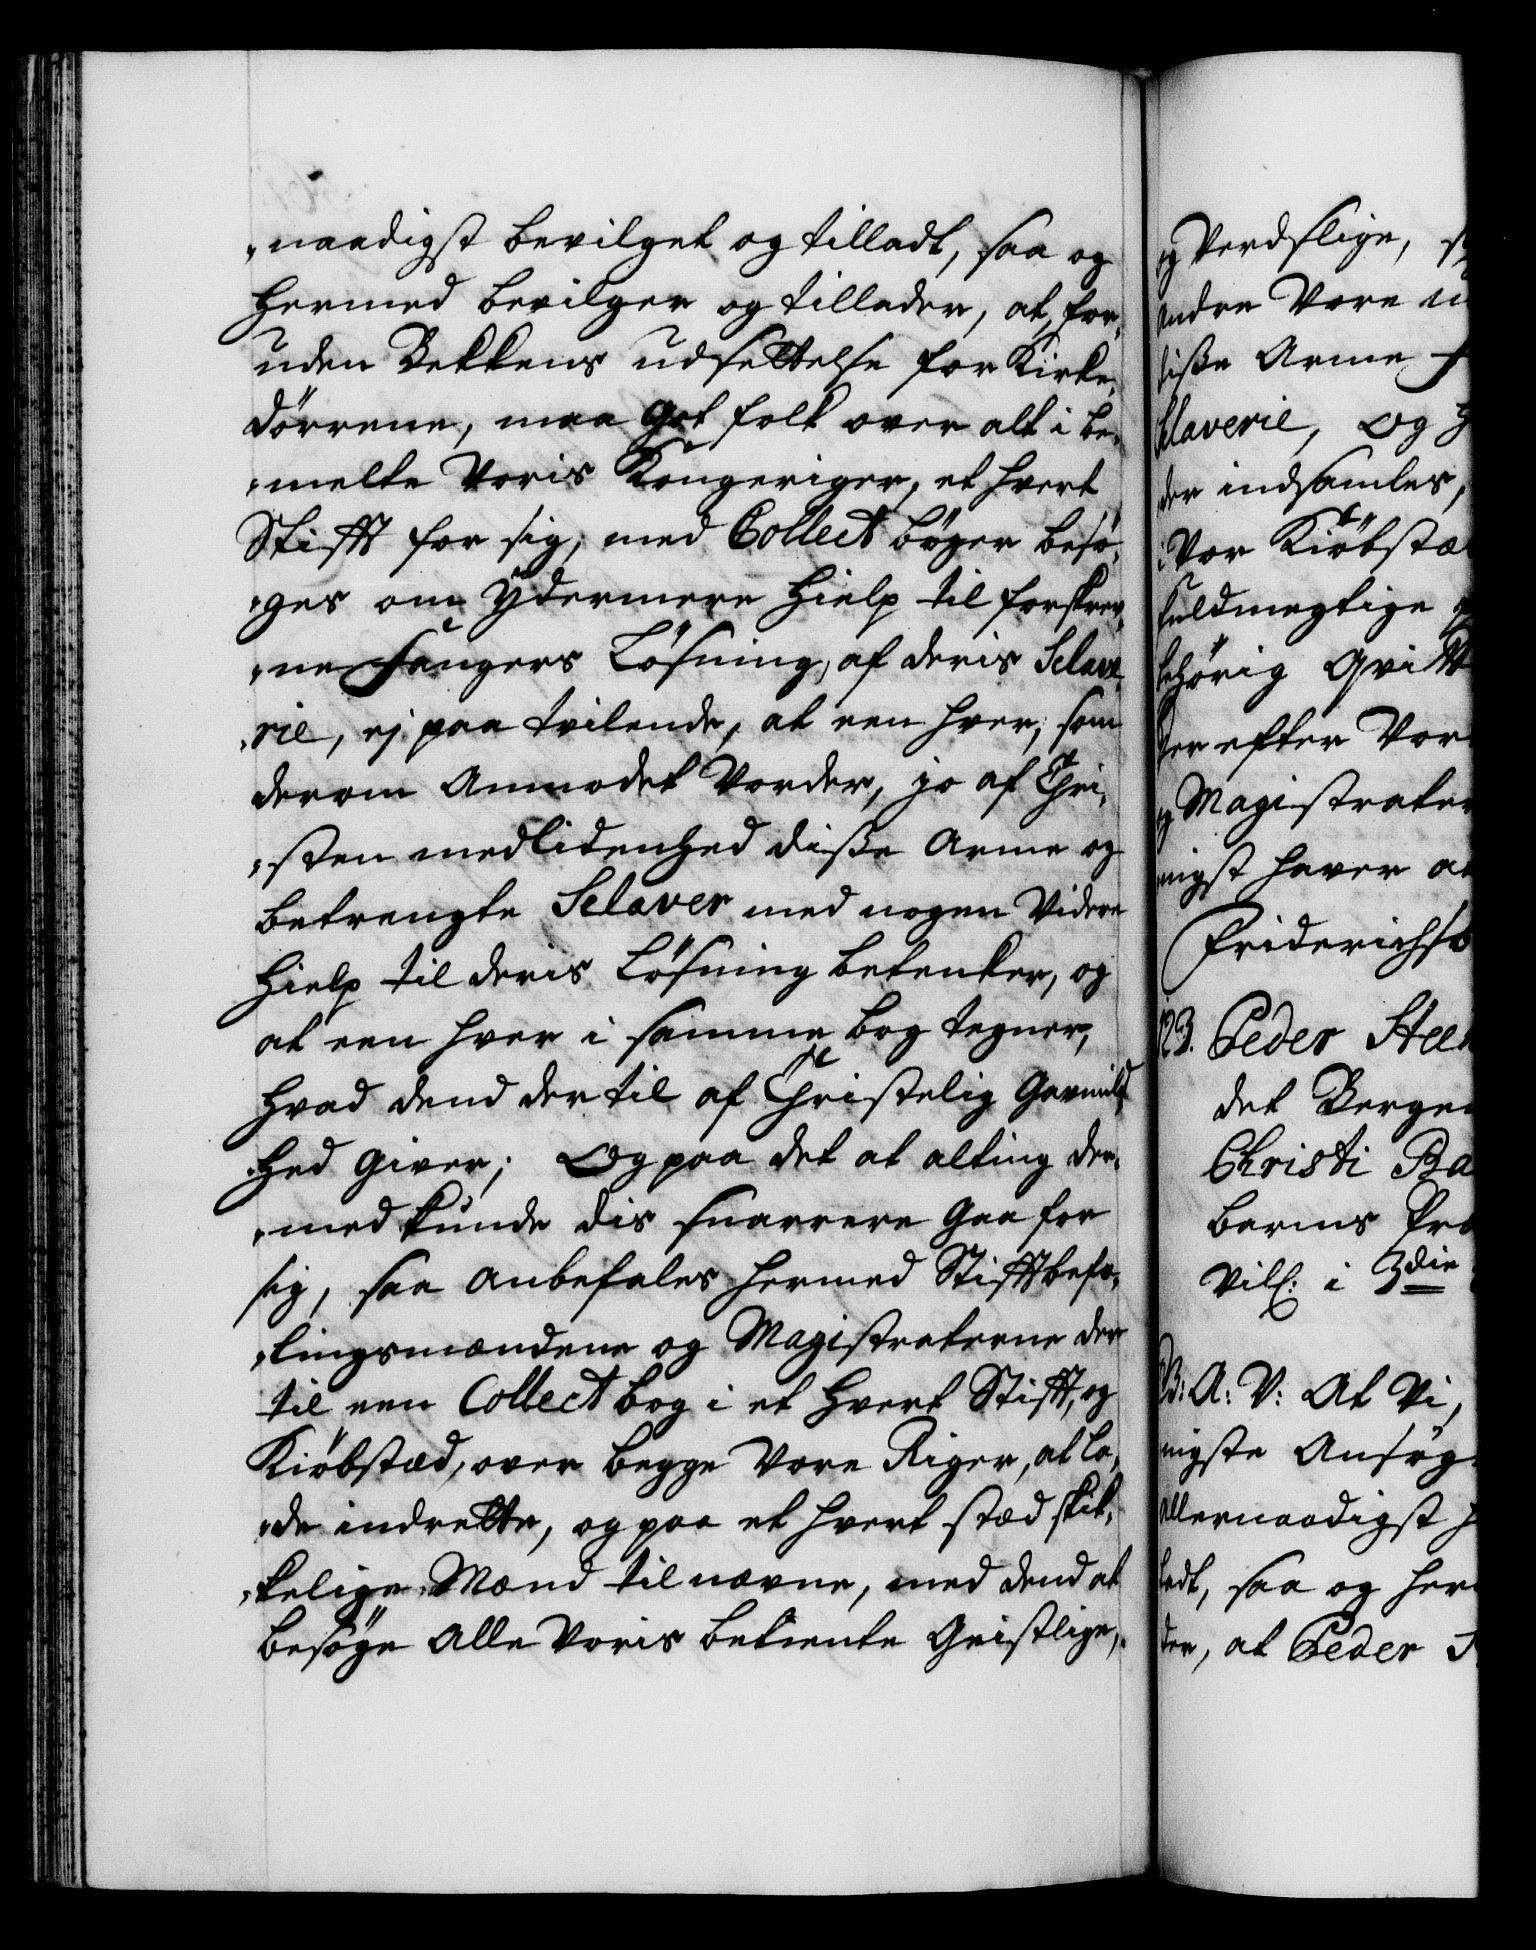 „naadigst bevilget og tilladt, saa og
hermed bevilger og tillader, at, for„
uden Bekkens udsettelse for Kirke„
dörrene, maa Got folk over alt i be„
„melte Voris Kongeriger, et hvert
Stifft for sig, med Collect böger besö„
„ges om ÿdermere Hielp til forskrev„
„ne Fangers Lösning, af deris Sclave„
„rie, ej paa tvilende, at een hver, som
derom Anmodet Vorder, jo af Chri„
„sten medlidenhed disse Arme og
betrengte Sclaver med nogen Videre
Hielp til deris Lösning betenker, og
at een hver i samme bog tegner,
hvad dend der til af Christelig Gavmild„
„hed Giver; Og paa det at alting der„
„med kunde dis snarrere Gaa for
sig, saa Anbefales hermed Stifftbefa„
„lingsmændene og Magistraterne der
til een Collect bog i et hvert Stifft, og
Kiöbstæd, over begge Vore Riger, at la„
„de indrette, og paa et hvert stæd skik„
„kelige Mænd til nævne, med dend at
besöge Alle Voris betiente Geistlige,
og Verdslige, s
andre Vore u
disse Arme F
Slaverie, Og H
der indsamles,
i Vor Kiöbstæ
fuldmegtige
behörig Qvitt
der efter Vor
og Magistrater
nigst haver at
Friderichs
123. Peder Steen
det Bergen
Christi Ba
barns Pro
Vill: i 3die
B: A: V: At Vi,
nigste Ansög
Allernaadigst h
ladt, saa og her
der, at Peder S